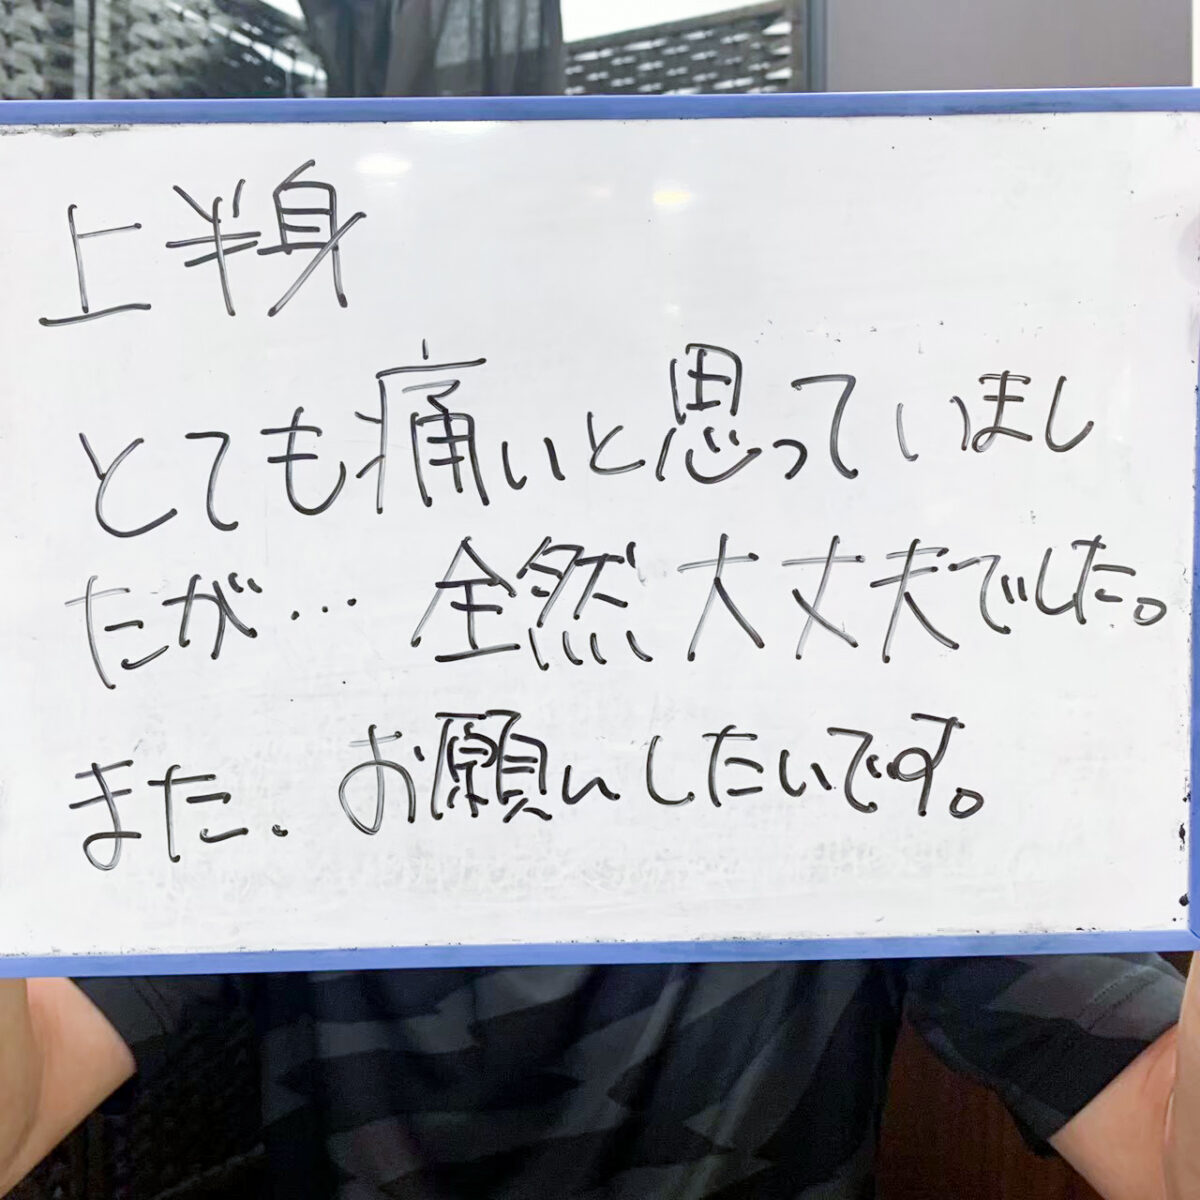 上半身
とても痛いと思っていまし
たが… 全然大丈夫でした。
また、お願いしたいです。